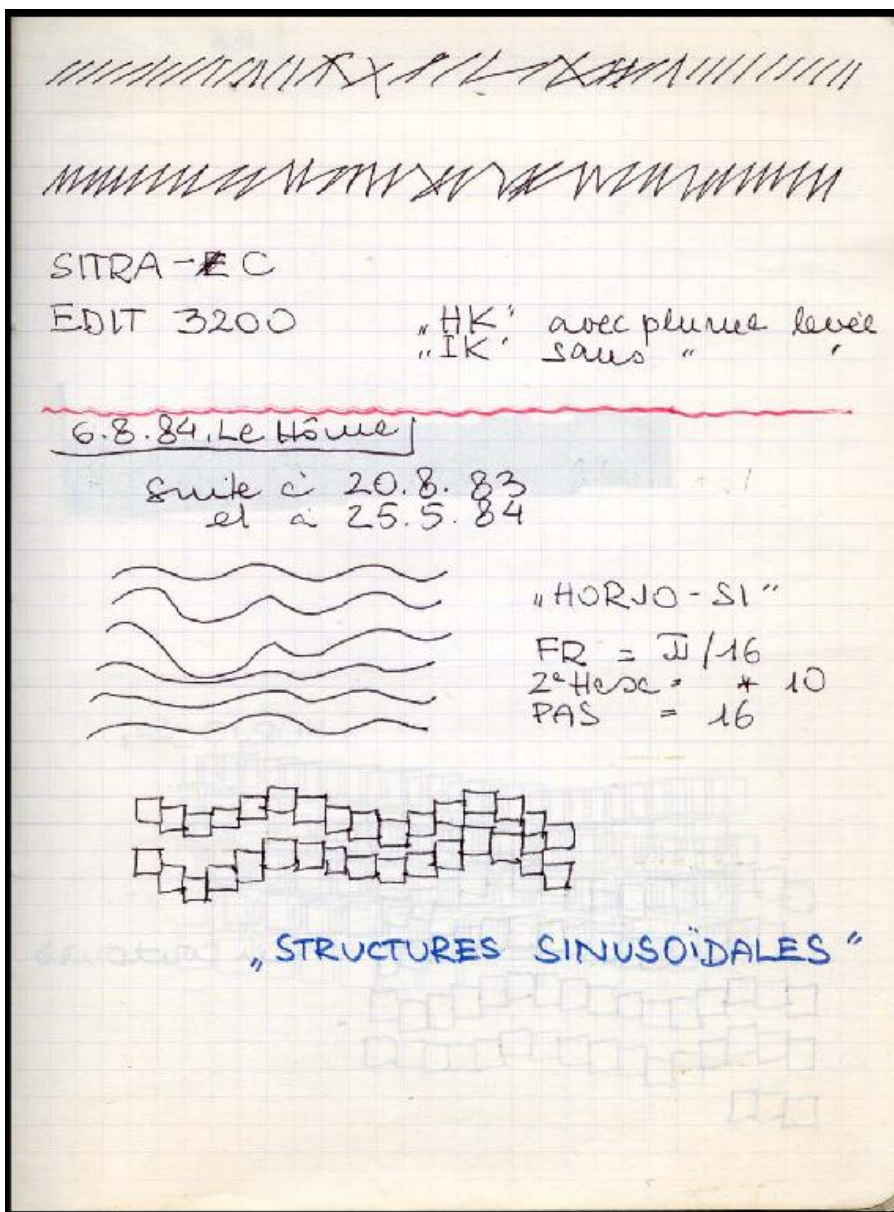 SITRA-C
EDIT 3200
„HK“ avec plume levée
„IK“ sans " "
6.8.84. Le Hôme
suite à 20.8.83
et à 25.5.84
„HORJO-SI"
FR = π/16
2e = * 10
PAS = 16
„STRUCTURES SINUSOÏDALES"